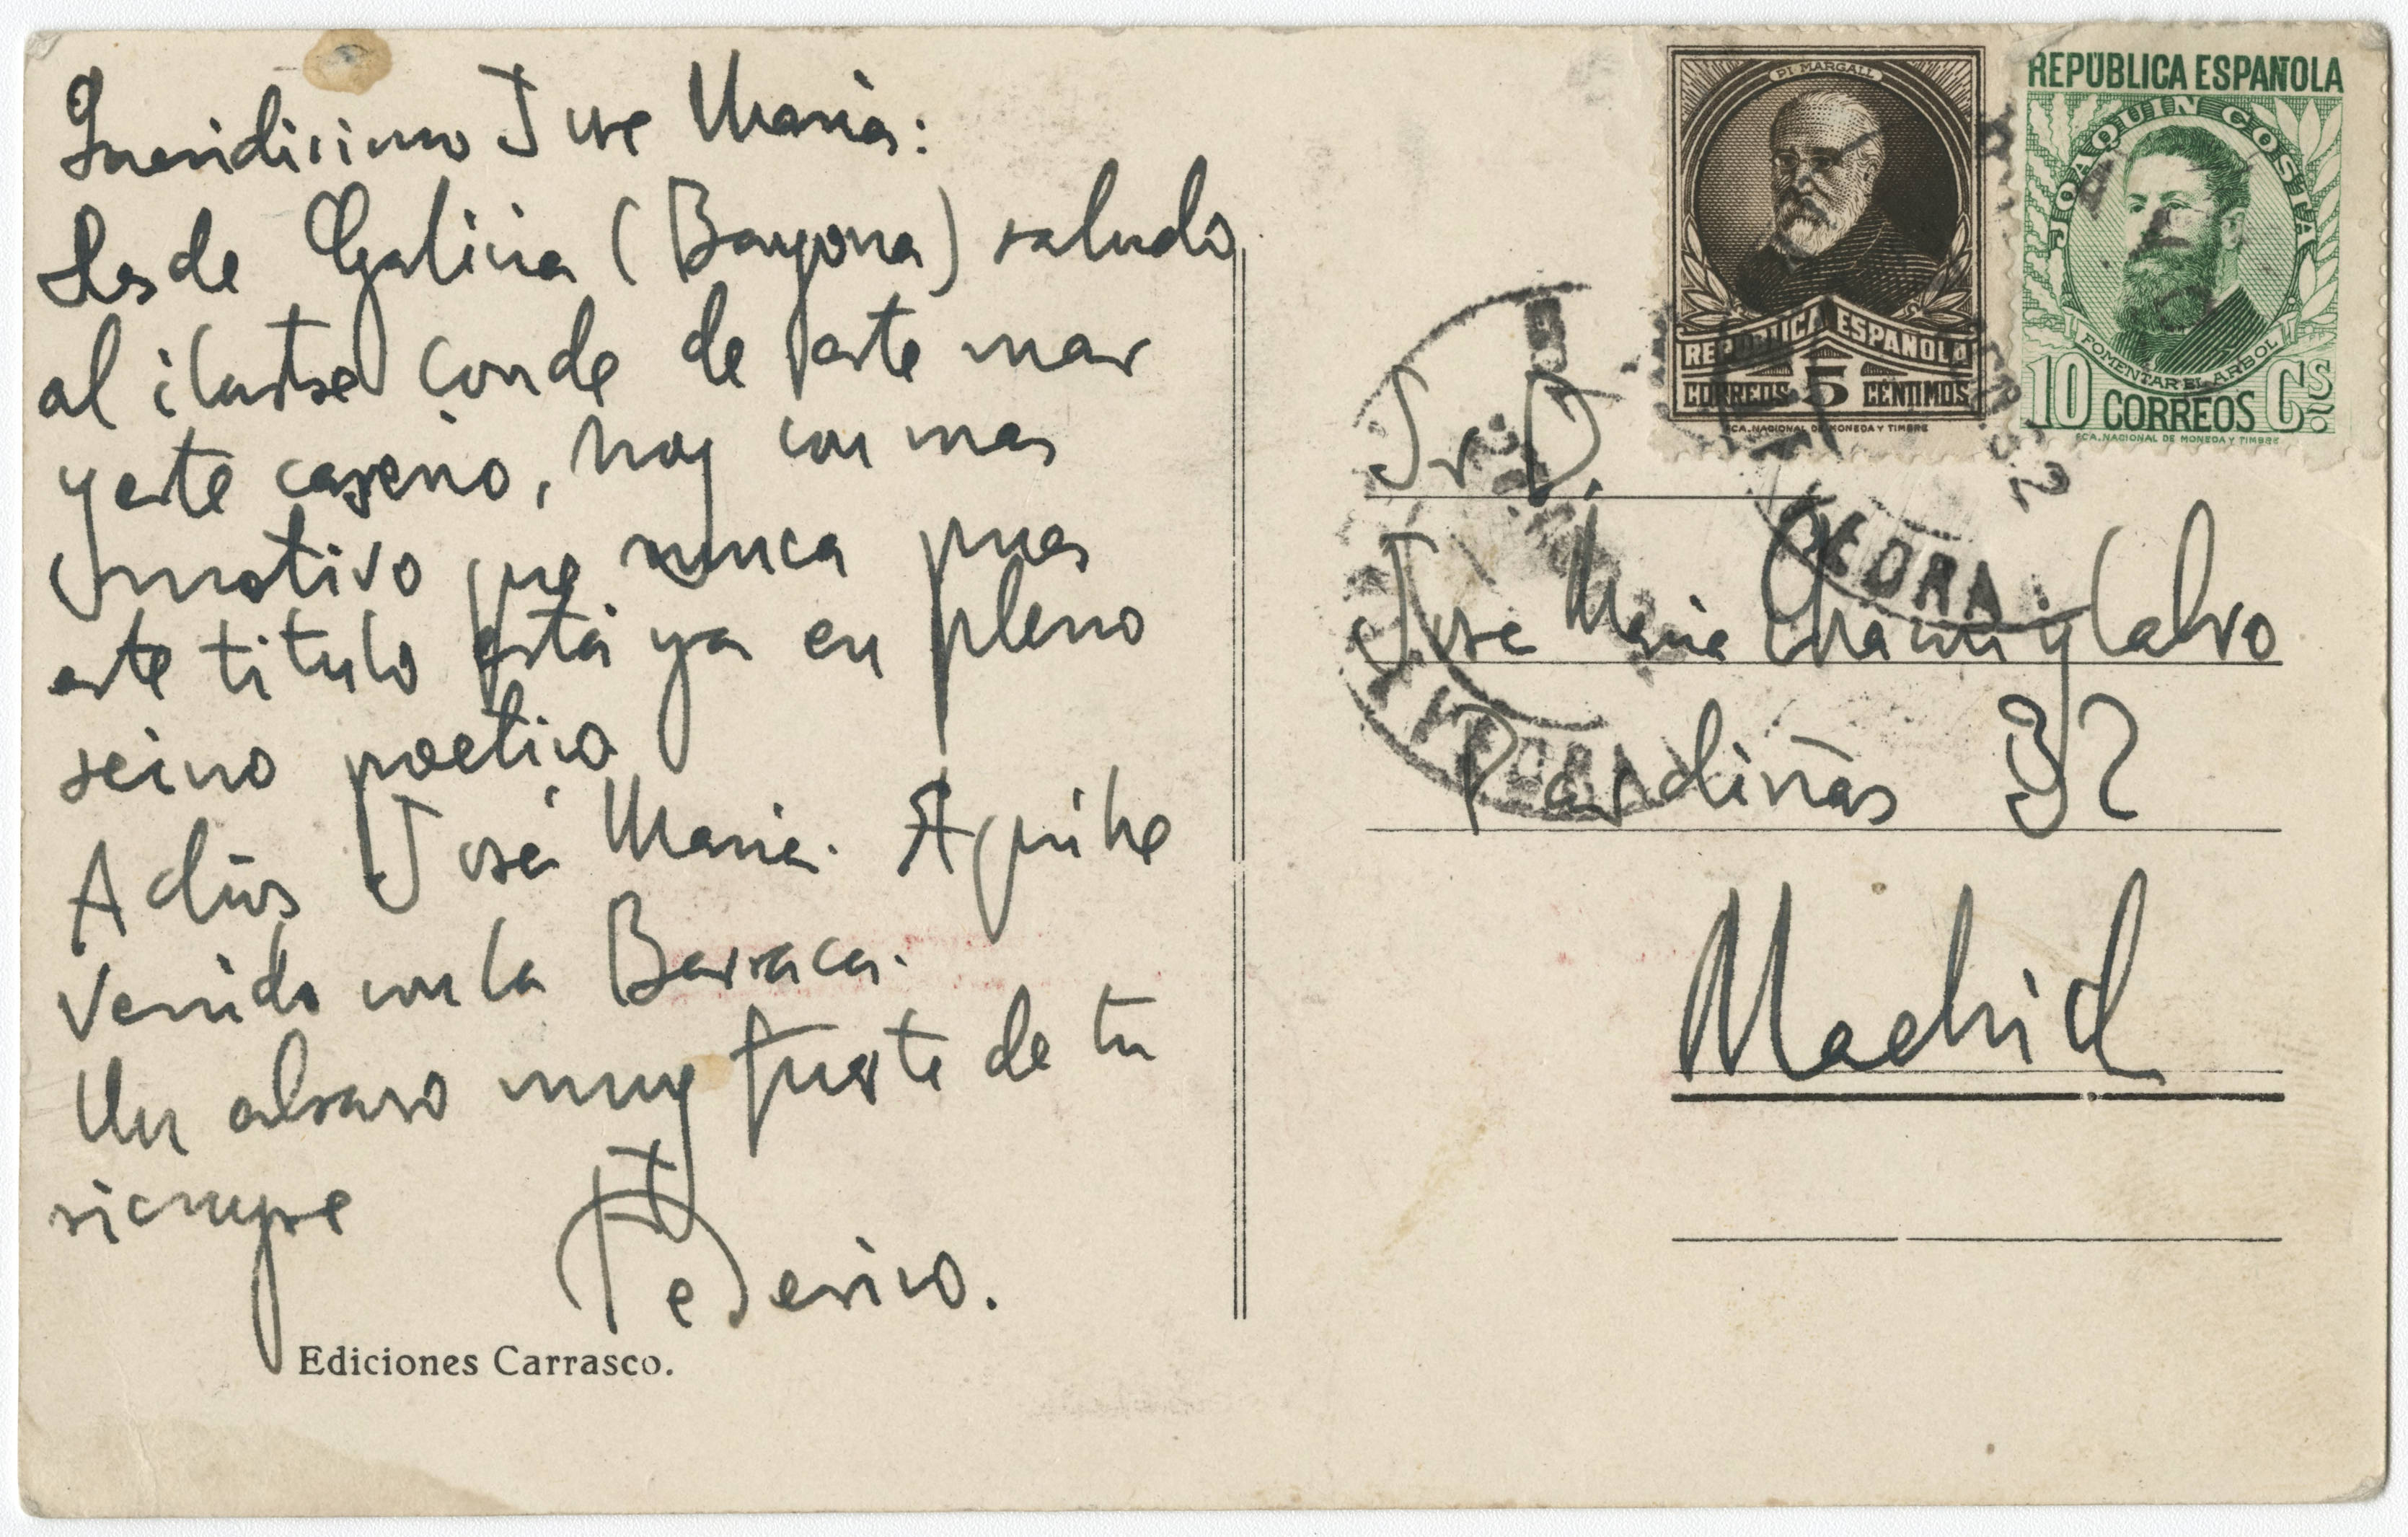 Queridisimo Jose Maria:
desde Galicia (Bayona) saludo
al ilustre conde de este mar
y este caserio, hoy con mas
motivo que nunca pues
este titulo está ya en pleno
reino poetico
Adios José Maria. Aqui he
venido con la Barraca.
Un abrazo muy fuerte de tu
siempre
Federico.
Ediciones Carrasco.
PI MARGALL
REPUBLICA ESPAÑOLA
CORREOS 5 CENTIMOS
FCA. NACIONAL DE MONEDA Y TIMBRE
REPÚBLICA ESPAÑOLA
JOAQUIN COSTA
FOMENTAR EL ARBOL
10 CORREOS Cs.
FCA. NACIONAL DE MONEDA Y TIMBRE
Sr. D.
José Maria Chacon y Calvo
Pardiñas 32
Madrid